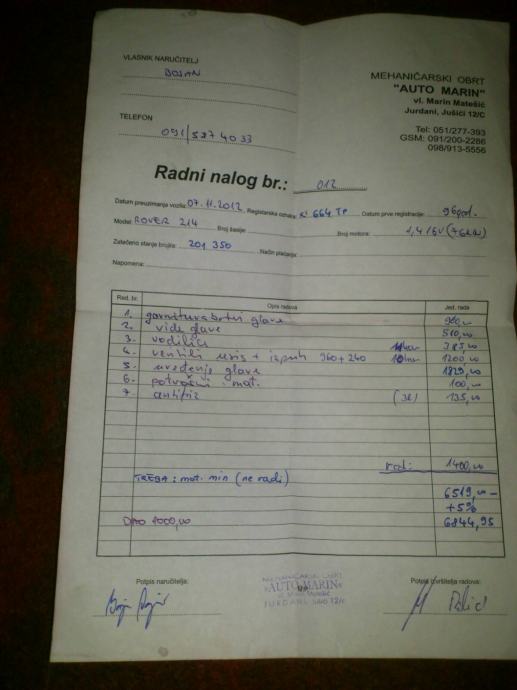 VLASNIK NARUČITELJ
BOJAN
TELEFON
091/587 40 33
MEHANIČARSKI OBRT
"AUTO MARIN"
vl. Marin Matešić
Jurdani, Jušići 12/C
Tel: 051/277-393
GSM: 091/200-2286
098/913-5556
Radni nalog br.: 012
Datum preuzimanja vozila: 07.11.2012. Registarska oznaka: RI 664 TP Datum prve registracije: 96god.
Model: ROVER 214 Broj šasije: Broj motora: 1,4/16V (76KW)
Zatečeno stanje brojila: 201 350 Način plaćanja:
Napomena:
Rad. br. Opis radova Jed. rada
1. garnitura brtvi glave 960,00
2. vide glave 510,00
3. vodilice 385,00
4. ventili usis + ispuh 960+240 1200,00
5. uređenje glave 1829,00
6. potrošni mat. 100,00
7. antifriz (3l) 135,00
rad: 1400,00
TREBA: mot. min (ne radi)
6519,00 -
+5%
DAO 1000,00 6844,95
Potpis naručitelja:
MEHANIČARSKI OBRT
"AUTO MARIN"
vl. Marin Matešić
JURDANI, Jušići 12/c
Potpis izvršitelja radova: